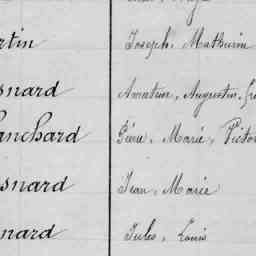 rtin Joseph, Mathurin
snard Amateur, Augustin, Fr
lanchard Pierre, Marie, Victo
snard Jean, Marie
nard Jules, Louis